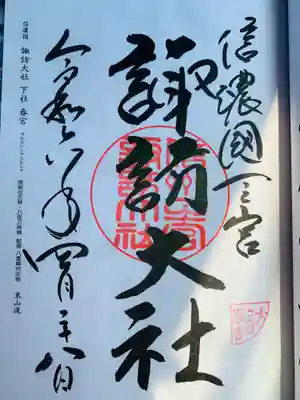 信濃國一之宮
諏訪大社
令和六年四月二十八日
信濃国 諏訪大社 下社 春宮
東山道